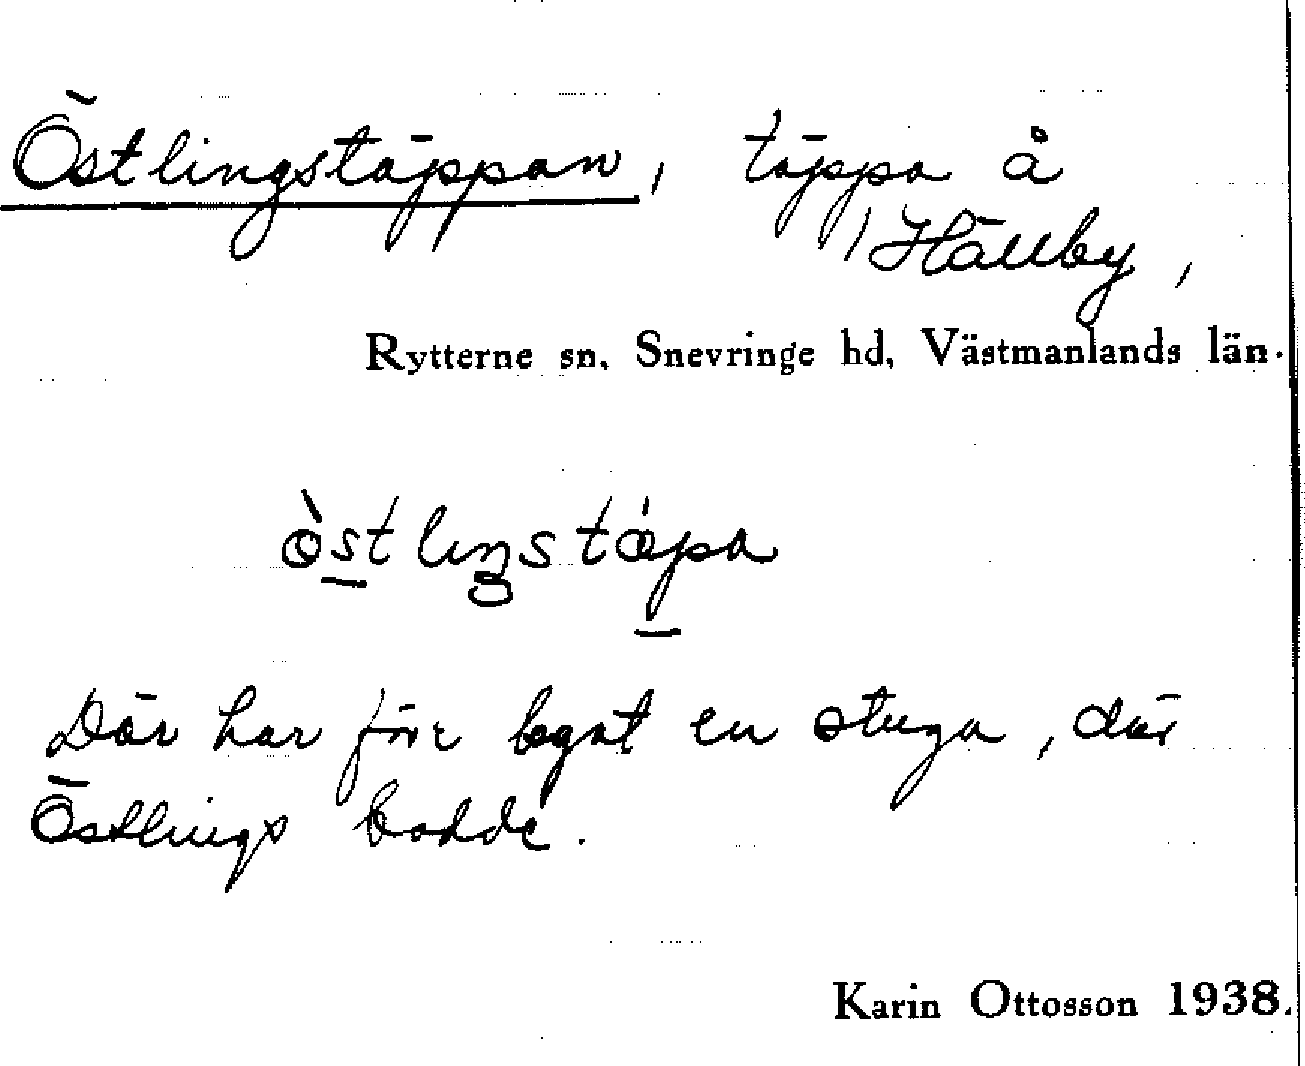 Östlingstäppan, täppa å
Hällby,
Rytterne sn, Snevringe hd, Västmanlands län.
Där har förr legat en stuga, där
Östlings bodde.
Karin Ottosson 1938.